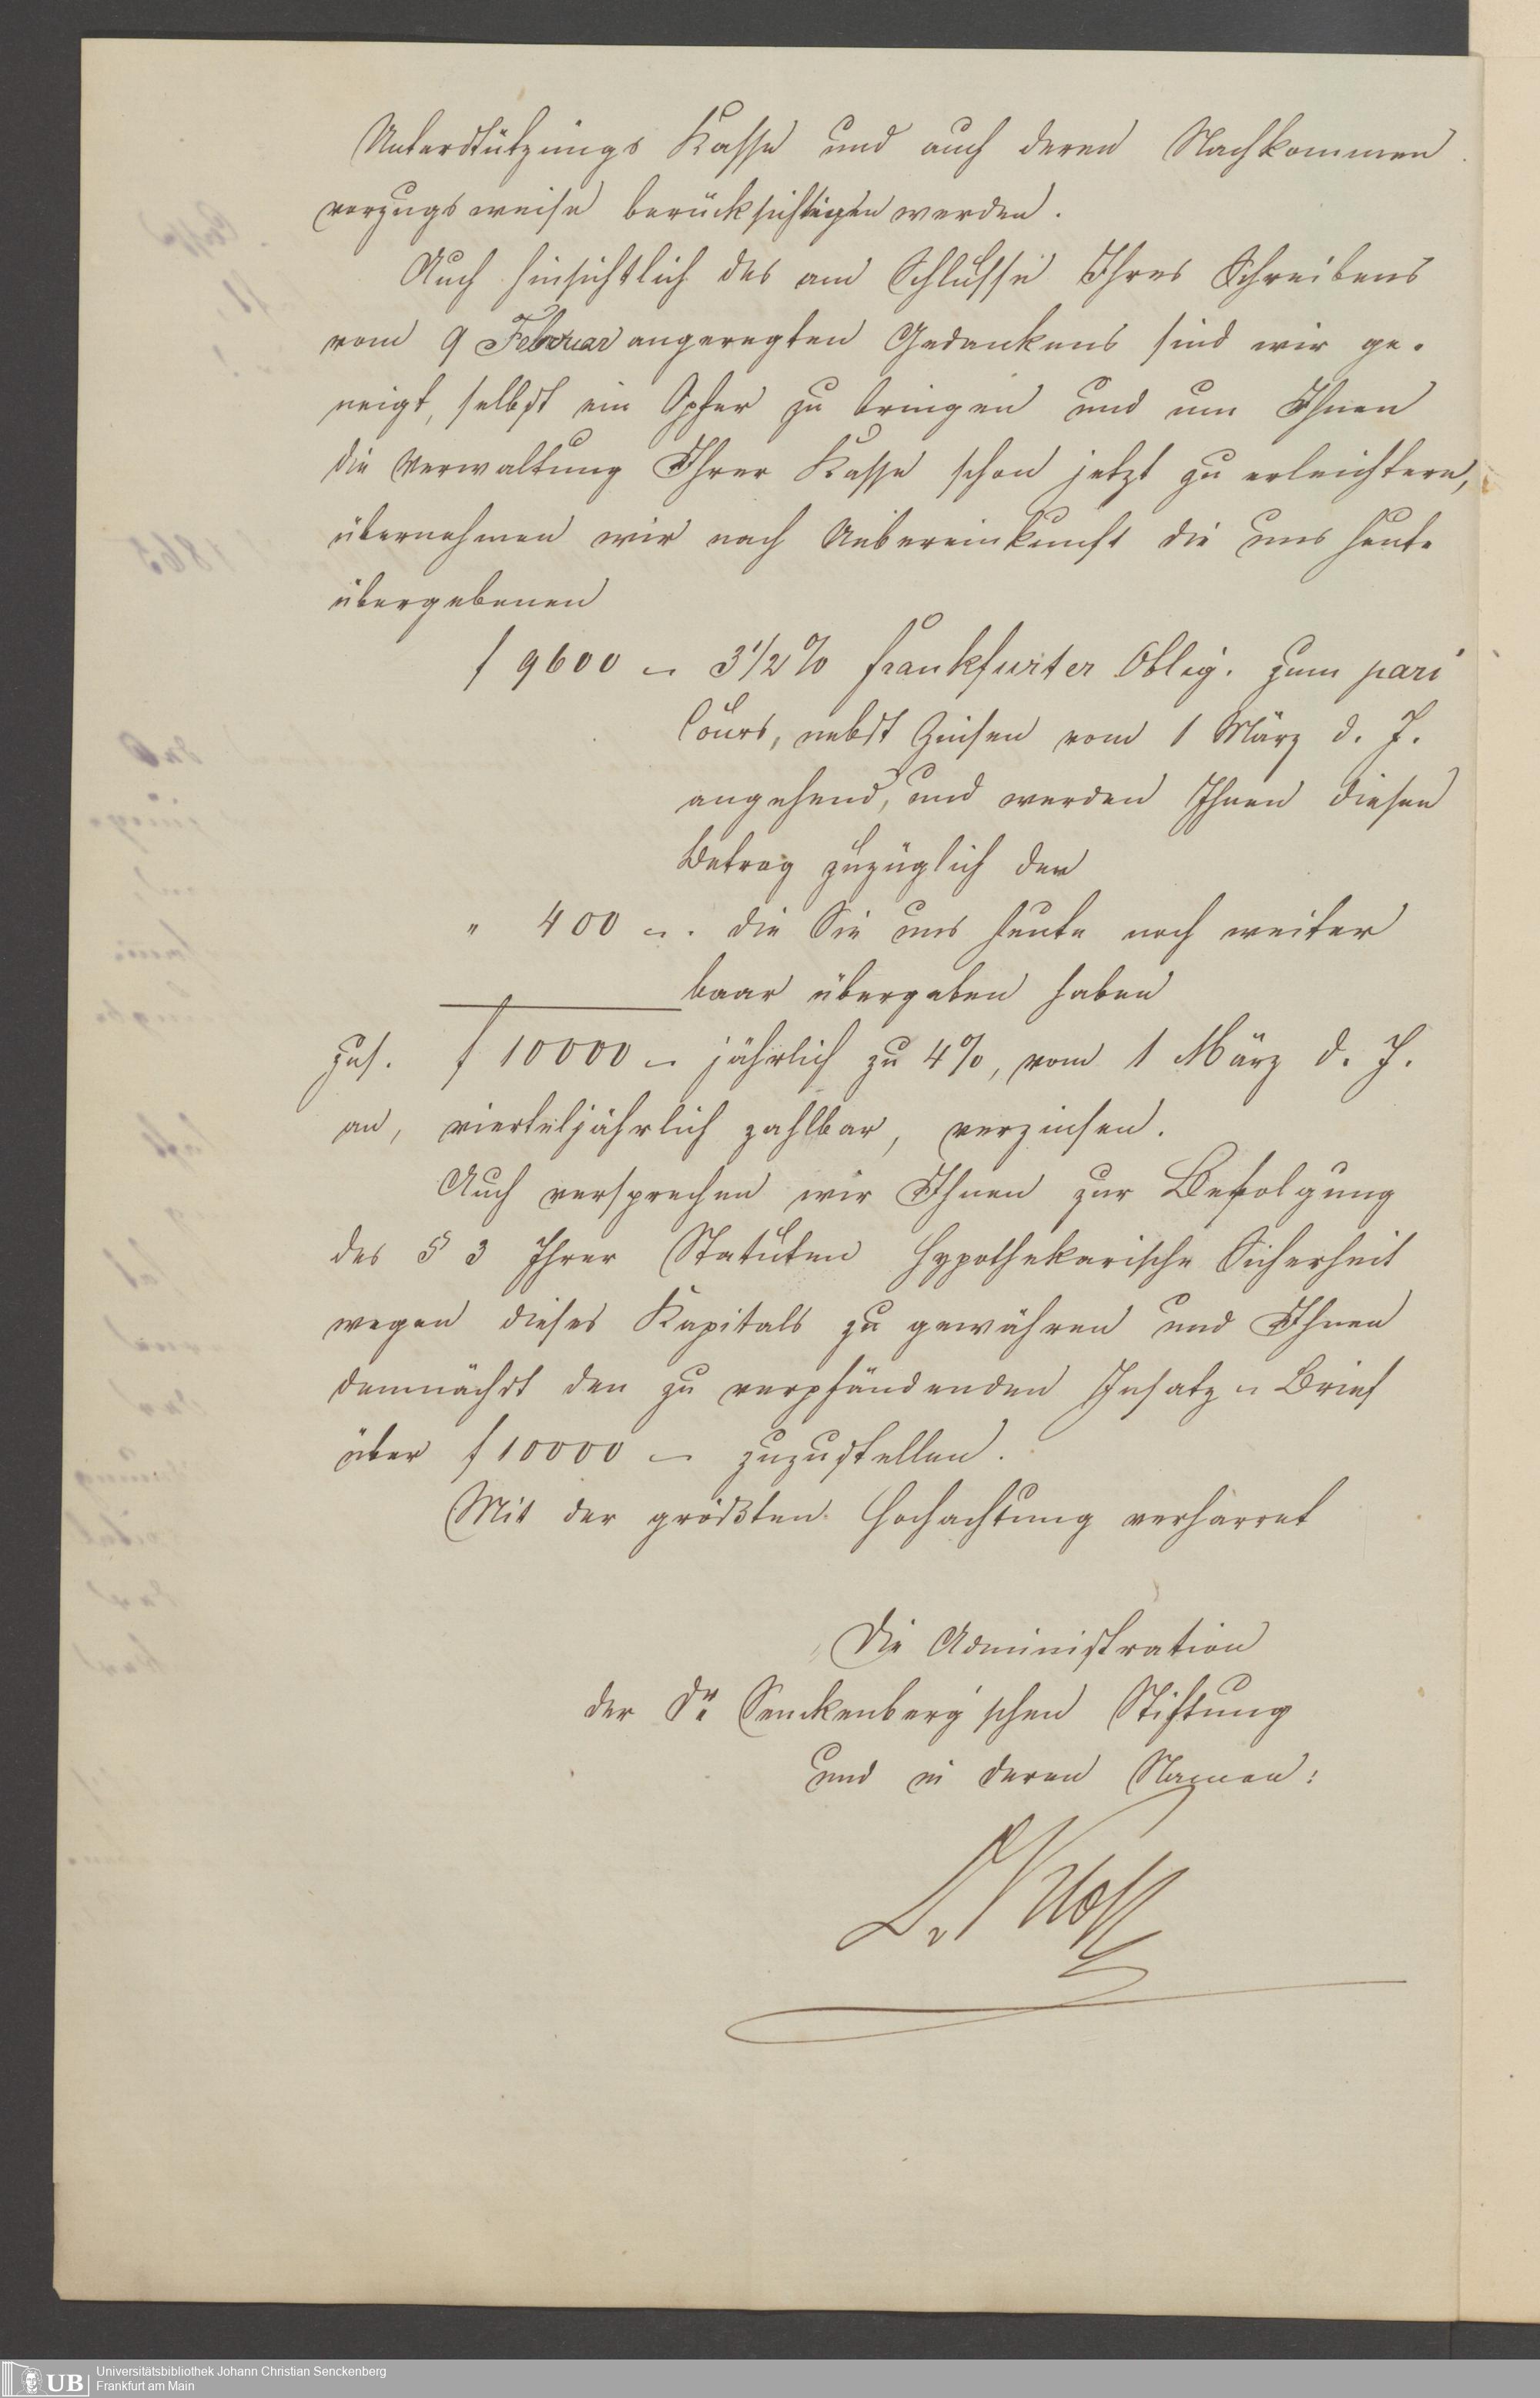 Unterstützungs Kasse und auch deren Nachkommen
vorzugsweise berücksichtigen werden.
Auch hinsichtlich des am Schlusse Ihres Schreibens
vom 9 Februar angeregten Gedankens sind wir ge-
neigt, selbst ein Opfer zu bringen und um Ihnen
die Verwaltung Ihrer Kasse schon jetzt zu erleichtern,
übernehmen wir nach Uebereinkunft die uns heute
übergebenen
f 9600 – 3 1/2 % Frankfurter Oblig. zum pari
Cours, nebst Zinsen vom 1 März d. J.
angehend, und werden Ihnen diesen
Betrag zuzüglich der
" 400 –. die Sie uns heute noch weiter
baar übergeben haben
zus. f 10000 – jährlich zu 4%, vom 1 März d. J.
an, vierteljährlich zahlbar, verzinsen.
Auch versprechen wir Ihnen zur Befolgung
des § 3 Ihrer Statuten hypothekarische Sicherheit
wegen dieses Kapitals zu gewähren und Ihnen
demnächst den zu verpfändenden Insatz-Brief
über f 10000 – zuzustellen.
Mit der größten Hochachtung verharret
Die Administration
der Dr. Senckenberg'schen Stiftung
und in deren Namen:
Dr Kloß
UB
Universitätsbibliothek Johann Christian Senckenberg
Frankfurt am Main